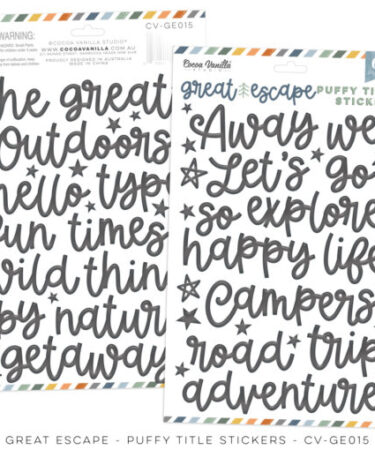 WARNING:
©COCOA VANILLA STUDIO
WWW.COCOAVANILLA.COM.AU
PROUDLY DESIGNED IN AUSTRALIA
MADE IN CHINA
CV-GE015
the great
outdoors
hello type
fun times
wild thin
by natur
getaway
Cocoa Vanilla
STUDIO
great escape
PUFFY TIT
STICKE
Away we
Let's go
so explore
happy life
Campers
road trip
adventure
GREAT ESCAPE - PUFFY TITLE STICKERS - CV-GE015